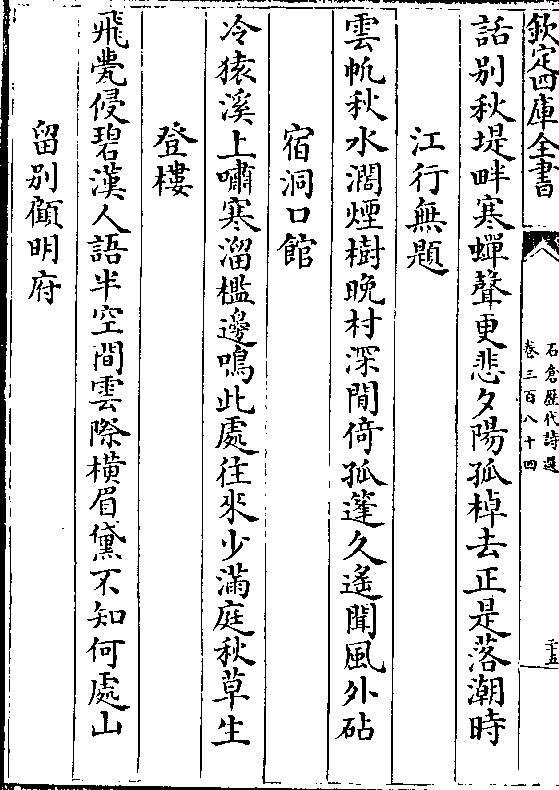 欽定四庫全書
石倉歷代詩選
卷三百八十四
二十五
話别秋堤畔寒蟬聲更悲夕陽孤棹去正是落潮時
江行無題
雲帆秋水濶煙樹晩村深閒倚孤蓬久遙聞風外砧
宿洞口館
冷猿溪上嘯寒溜檻邊鳴此處往來少滿庭秋草生
登樓
飛甍侵碧漢人語半空間雲際橫眉黛不知何處山
留别顧明府